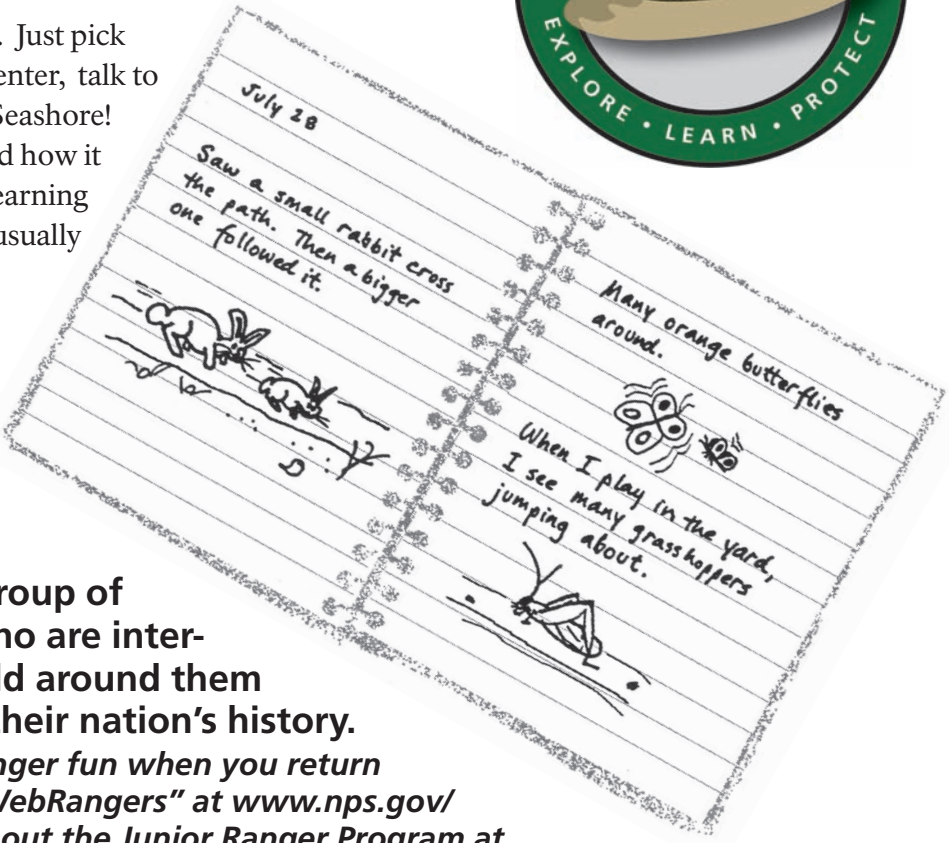 . Just pick
enter, talk to
Seashore!
d how it
earning
usually
EXPLORE • LEARN • PROTECT
July 28
Saw a small rabbit cross
the path. Then a bigger
one followed it.
Many orange butterflies
around.
When I play in the yard,
I see many grasshoppers
jumping about.
roup of
no are inter-
ld around them
their nation's history.
nger fun when you return
WebRangers" at www.nps.gov/
out the Junior Ranger Program at